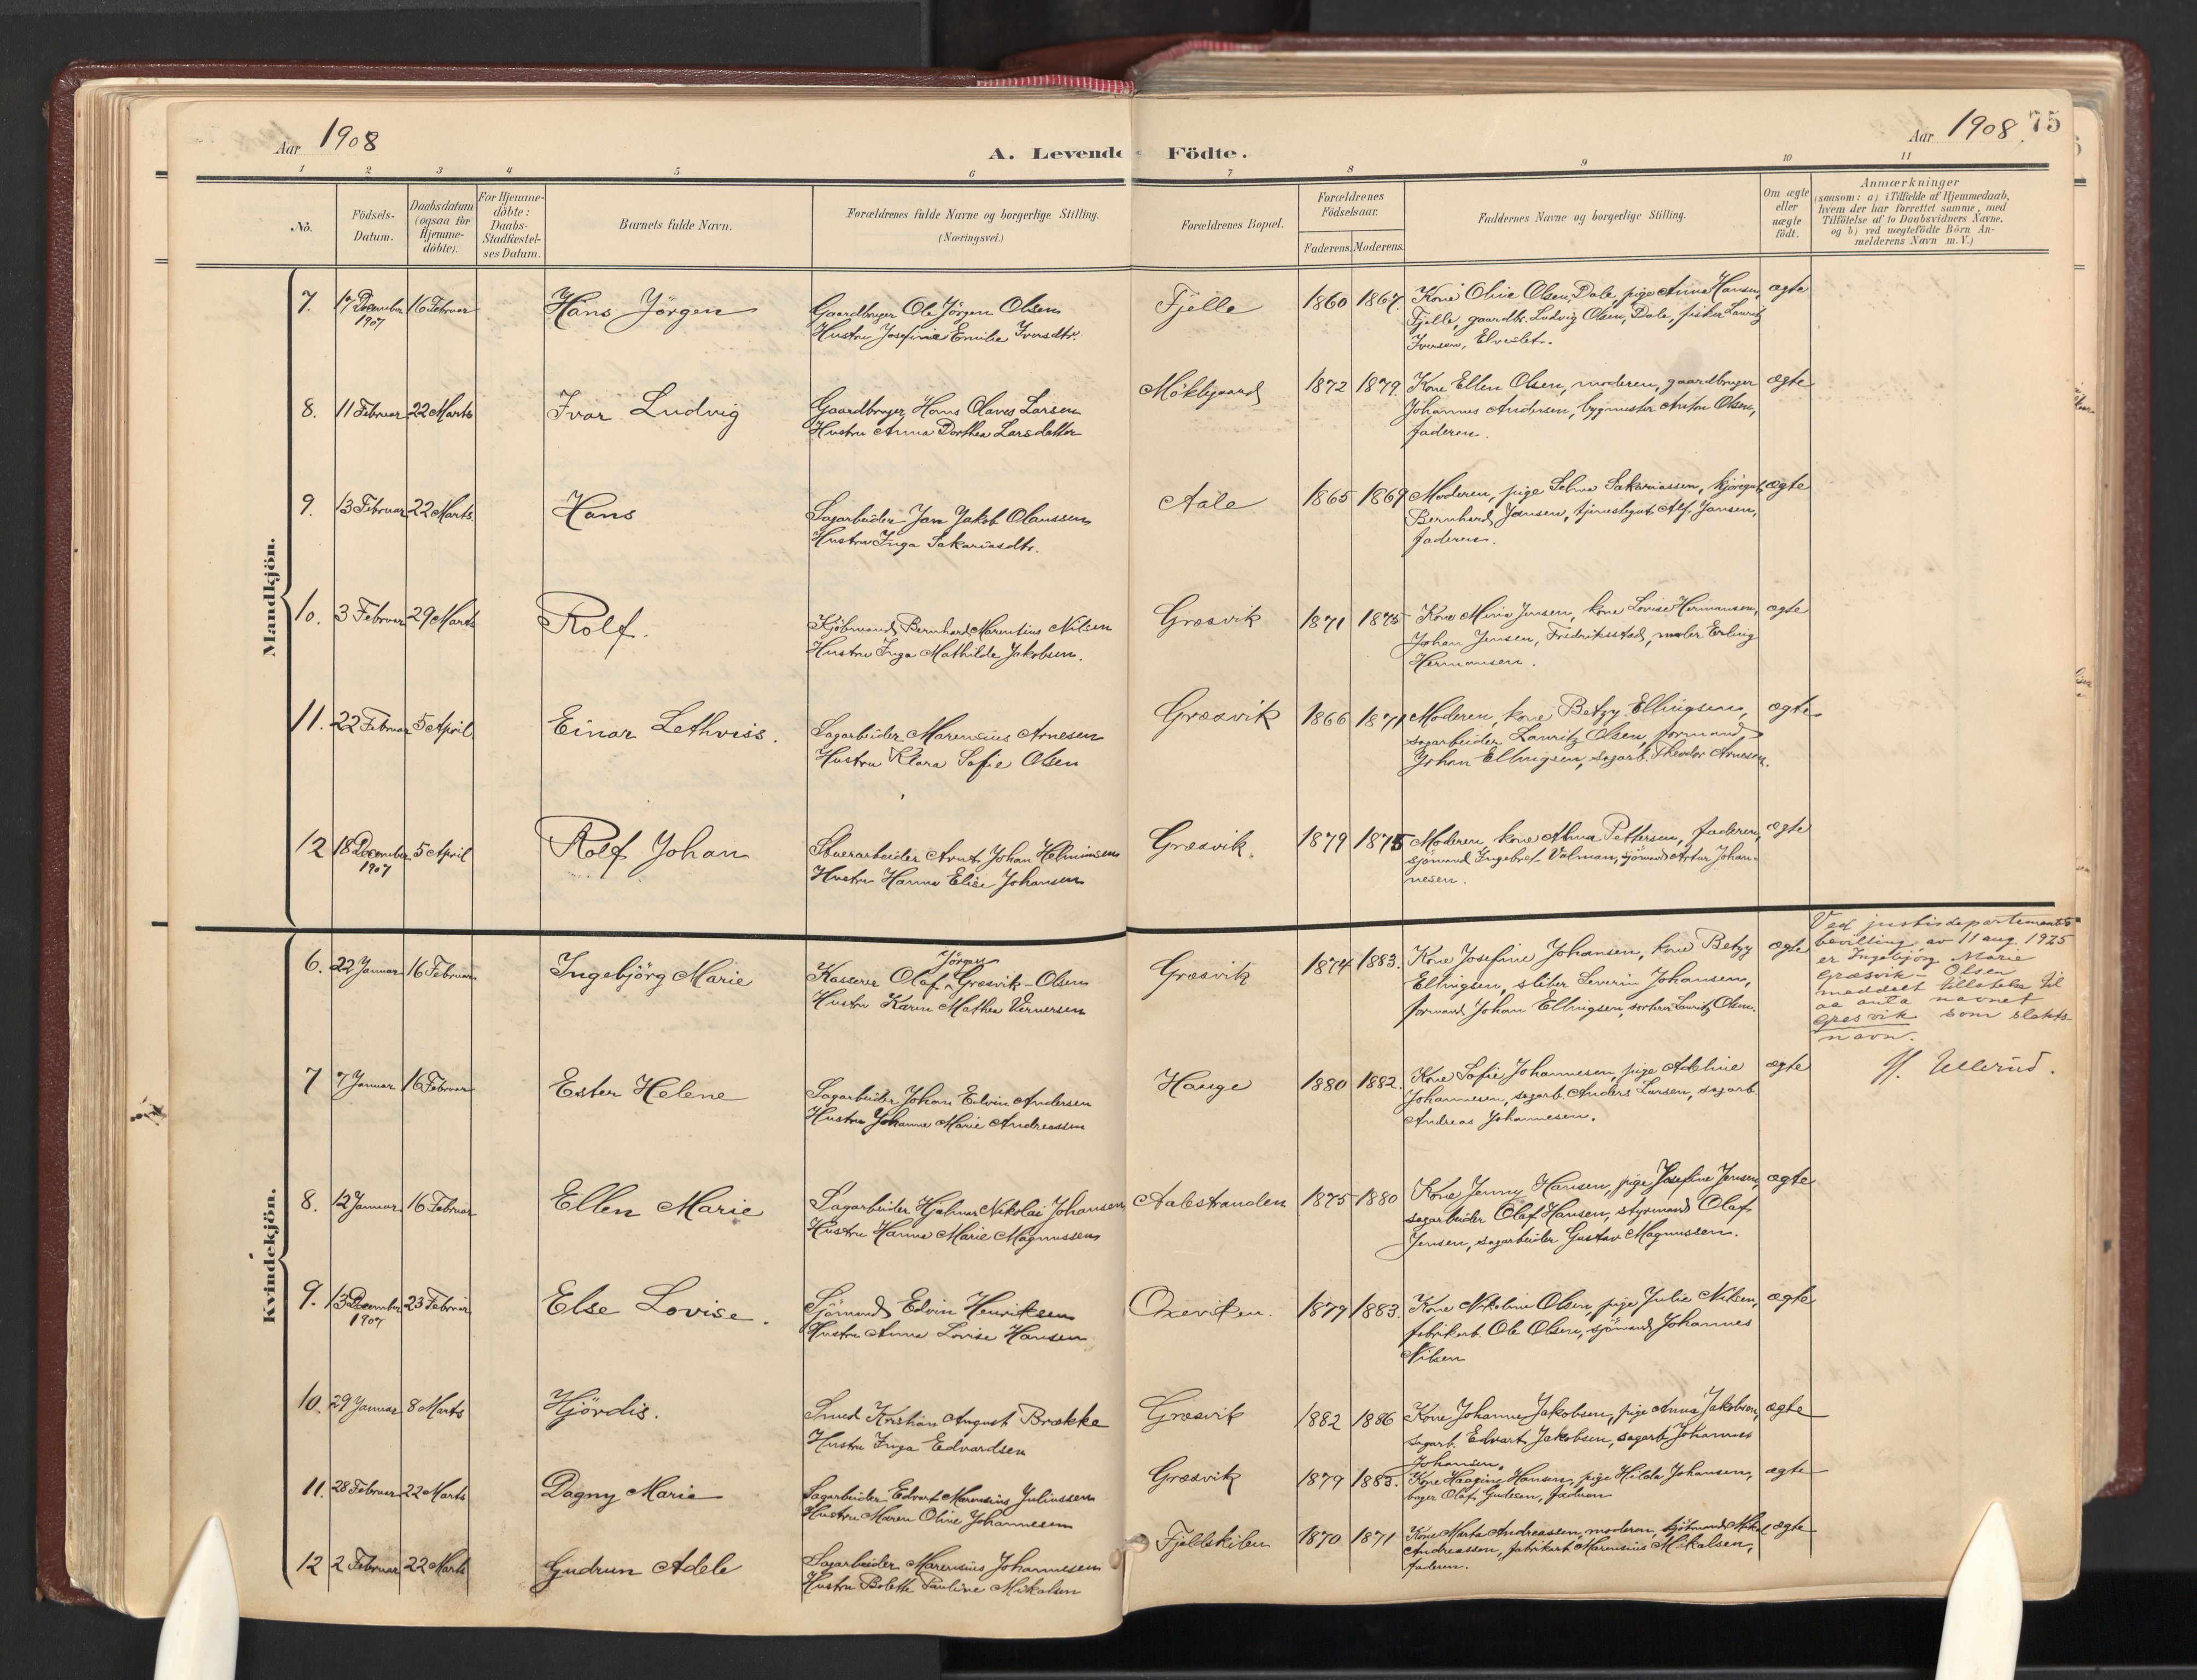 Aar 1908
A. Levende Födte.
Aar 1908. 75
1 2 3 4 5 6 7 8 9 10 11
No.
Födsels-
Datum.
Daabsdatum
(ogsaa for
Hjemme-
döbte).
For Hjemme-
döbte:
Daabs-
Stadfæstel-
ses Datum.
Barnets fulde Navn.
Forældrenes fulde Navne og borgerlige Stilling.
(Næringsvei.)
Forældrenes Bopæl.
Forældrenes
Födselsaar.
Faderens. Moderens.
Faddernes Navne og borgerlige Stilling.
Om ægte
eller
uægte
födt.
Anmærkninger
(saasom: a) i Tilfælde af Hjemmedaab,
hvem der har forrettet samme, med
Tilföielse af to Daabsvidners Navne,
og b) ved uægtefödte Börn An-
melderens Navn m. V.)
Mandkjön.
7. 17 December 1907 16 Februar Hans Jörgen
Gaardbruger Ole Jörgen Olsen
Hustru Josefine Emilie Iversdtr.
Fjelle 1860 1867.
Kone Oline Olsen, Dale, pige Anna Hansen,
Fjelle, gaardbr. Ludvig Olsen, Dale, fisker Lauritz
Iversen, Elveslet.
ægte
8. 11 Februar 22 Marts Ivar Ludvig
Gaardbruger Hans Olaves Larsen
Hustru Anna Dorthea Larsdatter
Möklegaard 1872 1879.
Kone Ellen Olsen, moderen, gaardbruger
Johannes Andersen, bygmester Anton Olsen,
faderen.
ægte
9. 13 Februar 22 Marts. Hans
Sagarbeider Jan Jakob Olaussen
Hustru Inga Sakariasdtr.
Aale 1865 1869
Moderen, pige Selma Sakariassen,
Bernhard Jansen, tjenestegut Alf. Jansen,
faderen.
ægte
10. 3 Februar 29 Marts Rolf.
Kjöbmand Bernhard Marentius Nilsen
Hustru Inga Mathilde Jakobsen.
Græsvik 1871 1875
Kone Mina Jensen, kone Lovise Hermansen,
Johan Jensen, Fredriksstad, maler Erling
Hermansen.
ægte
11. 22 Februar 5 April Einar Lethviss.
Sagarbeider Marensius Arnesen
Hustru Klara Sofie Olsen
Græsvik 1866 1871
Moderen, kone Betzy Ellingsen,
sagarbeider Lauritz Olsen, formand
Johan Ellingsen, sagarb. Theodor Arnesen.
ægte
12 18 December 1907 5 April Rolf Johan
Stuerarbeider Arnt Johan Helminsen
Hustru Hanna Elise Johansen
Græsvik. 1879 1875
Moderen, kone Alma Pettersen, faderen,
sjömand Ingebret Valman, sjömand Artur Johan-
nesen.
ægte
Kvindekjön.
6. 22 Januar 16 Februar Ingebjörg Marie
Jörgen
Kasserer Olaf Græsvik-Olsen
Hustru Karen Mathea Vernersen
Græsvik 1874 1883.
Kone Josefine Johansen, kone Betzy
Ellingsen, sliber Severin Johansen,
formand Johan Ellingsen, sorterer Lauritz Olsen.
ægte
Ved justisdepartementets
bevilling av 11 aug. 1925
er Ingebjørg Marie
Græsvik-Olsen
meddelt tillatelse til
aa anta navnet
Gresvik som slekts-
navn.
H. Ullerud.
7 7 Januar 16 Februar Ester Helene
Sagarbeider Johan Edvin Andersen
Hustru Johanne Marie Andreassen
Hauge 1880 1882.
Kone Sofie Johannesen, pige Adeline
Johannesen, sagarb. Anders Larsen, sagarb.
Andreas Johannesen.
ægte
8. 12 Januar 16 Februar Ellen Marie
Sagarbeider Hjalmar Nikolai Johansen
Hustru Hanna Marie Magnussen
Aalestranden 1875 1880
Kone Jenny Hansen, pige Josefine Jensen,
sagarbeider Olaf Hansen, styrmand Olaf
Jensen, sagarbeider Gustav Magnussen.
ægte
9. 13 December 1907 23 Februar Else Lovise.
Sjömand Edvin Henriksen
Hustru Anna Lovise Hansen
Oxeviken. 1879 1883.
Kone Nikoline Olsen, pige Julie Nilsen,
fabrikarb. Ole Olsen, sjömand Johannes
Nilsen
ægte
10. 29 Januar 8 Marts Hjördis.
Smed Kristian August Brække
Hustru Inga Edvardsen
Græsvik 1882 1886
Kone Johanne Jakobsen, pige Anna Jakobsen,
sagarb. Edvart Jakobsen, sagarb. Johannes
Johansen.
ægte
11. 28 Februar 22 Marts Dagny Marie
Sagarbeider Edvart Marensius Juliussen
Hustru Maren Oline Johannesen
Græsvik 1879 1883.
Kone Haagine Hansen, pige Hilda Johansen,
bager Olaf Gudesen, faderen
ægte
12 2 Februar 22 Marts Gudrun Adele
Sagarbeider Marensius Johannesen
Hustru Bolette Pauline Mikalsen
Fjeldskilen 1870 1871
Kone Marta Andreassen, moderen, kjöbmand Mikal
Andreassen, fabrikarb. Marensius Mikalsen,
faderen.
ægte